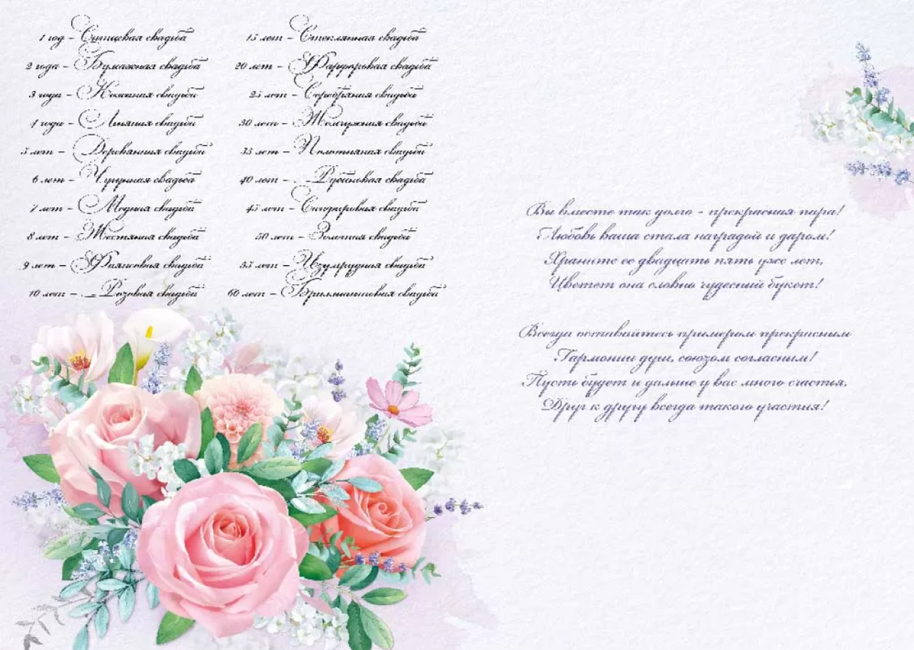 1 год – Ситцевая свадьба
2 года – Бумажная свадьба
3 года – Кожаная свадьба
4 года – Льняная свадьба
5 лет – Деревянная свадьба
6 лет – Чугунная свадьба
7 лет – Медная свадьба
8 лет – Жестяная свадьба
9 лет – Фаянсовая свадьба
10 лет – Розовая свадьба
15 лет – Стеклянная свадьба
20 лет – Фарфоровая свадьба
25 лет – Серебряная свадьба
30 лет – Жемчужная свадьба
35 лет – Полотняная свадьба
40 лет – Рубиновая свадьба
45 лет – Сапфировая свадьба
50 лет – Золотая свадьба
55 лет – Изумрудная свадьба
60 лет – Бриллиантовая свадьба
Вы вместе так долго – прекрасная пара!
Любовь ваша стала наградой и даром!
Храните ее двадцать пять уже лет,
Цветет она словно чудесный букет!
Всегда оставайтесь примером прекрасным
Гармонии душ, союзом согласным!
Пусть будет и дальше у вас много счастья,
Друг к другу всегда такого участия!